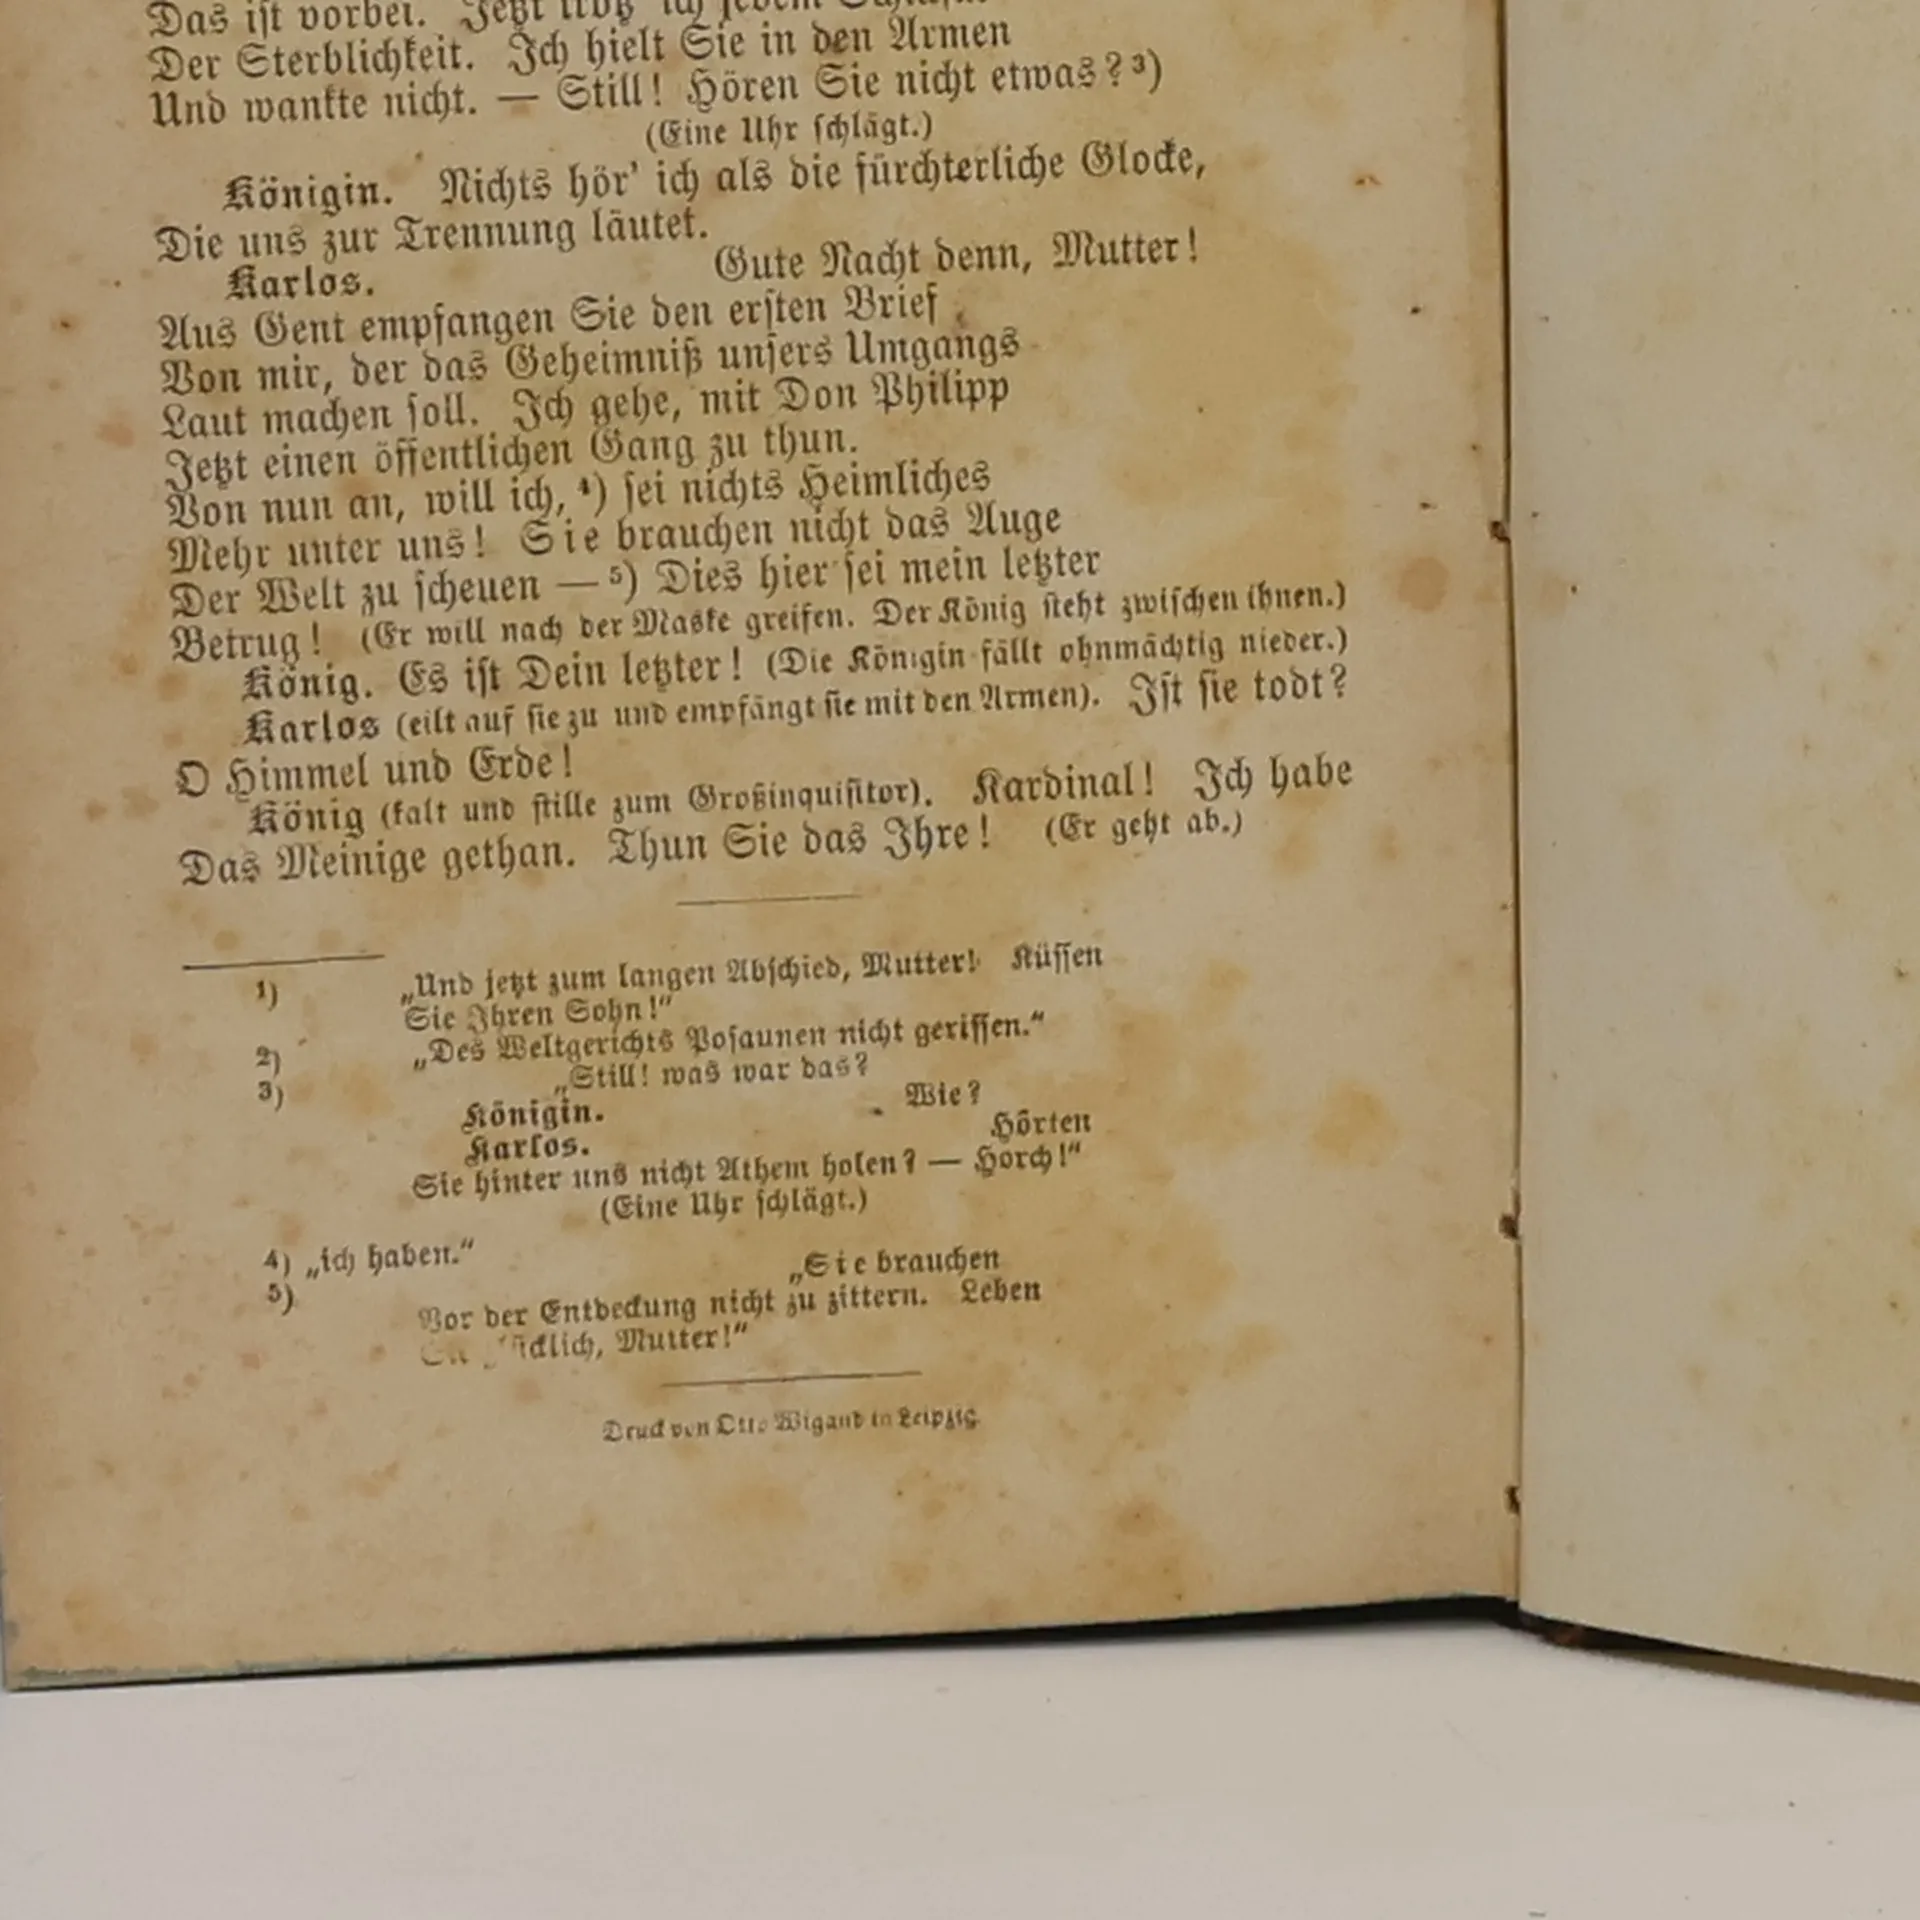 Das ist vorbei. Jetzt trotz' ich jedem Schicksal
Der Sterblichkeit. Ich hielt Sie in den Armen
Und wankte nicht. — Still! Hören Sie nicht etwas? ³)
(Eine Uhr schlägt.)
Königin. Nichts hör' ich als die fürchterliche Glocke,
Die uns zur Trennung läutet.
Karlos. Gute Nacht denn, Mutter!
Aus Gent empfangen Sie den ersten Brief
Von mir, der das Geheimniß unsers Umgangs
Laut machen soll. Ich gehe, mit Don Philipp
Jetzt einen öffentlichen Gang zu thun.
Von nun an, will ich, ⁴) sei nichts Heimliches
Mehr unter uns! Sie brauchen nicht das Auge
Der Welt zu scheuen — ⁵) Dies hier sei mein letzter
Betrug! (Er will nach der Maske greifen. Der König steht zwischen ihnen.)
König. Es ist Dein letzter! (Die Königin fällt ohnmächtig nieder.)
Karlos (eilt auf sie zu und empfängt sie mit den Armen). Ist sie todt?
O Himmel und Erde!
König (kalt und stille zum Großinquisitor). Kardinal! Ich habe
Das Meinige gethan. Thun Sie das Ihre! (Er geht ab.)
1) „Und jetzt zum langen Abschied, Mutter! Küssen
Sie Ihren Sohn!“
2) „Des Weltgerichts Posaunen nicht gerissen.“
3) „Still! was war das?
Königin. Wie?
Karlos. Hörten
Sie hinter uns nicht Athem holen? — Horch!“
(Eine Uhr schlägt.)
4) „ich haben.“
5) „Sie brauchen
Vor der Entdeckung nicht zu zittern. Leben
Mutter!“
Druck von Otto Wigand in Leipzig.